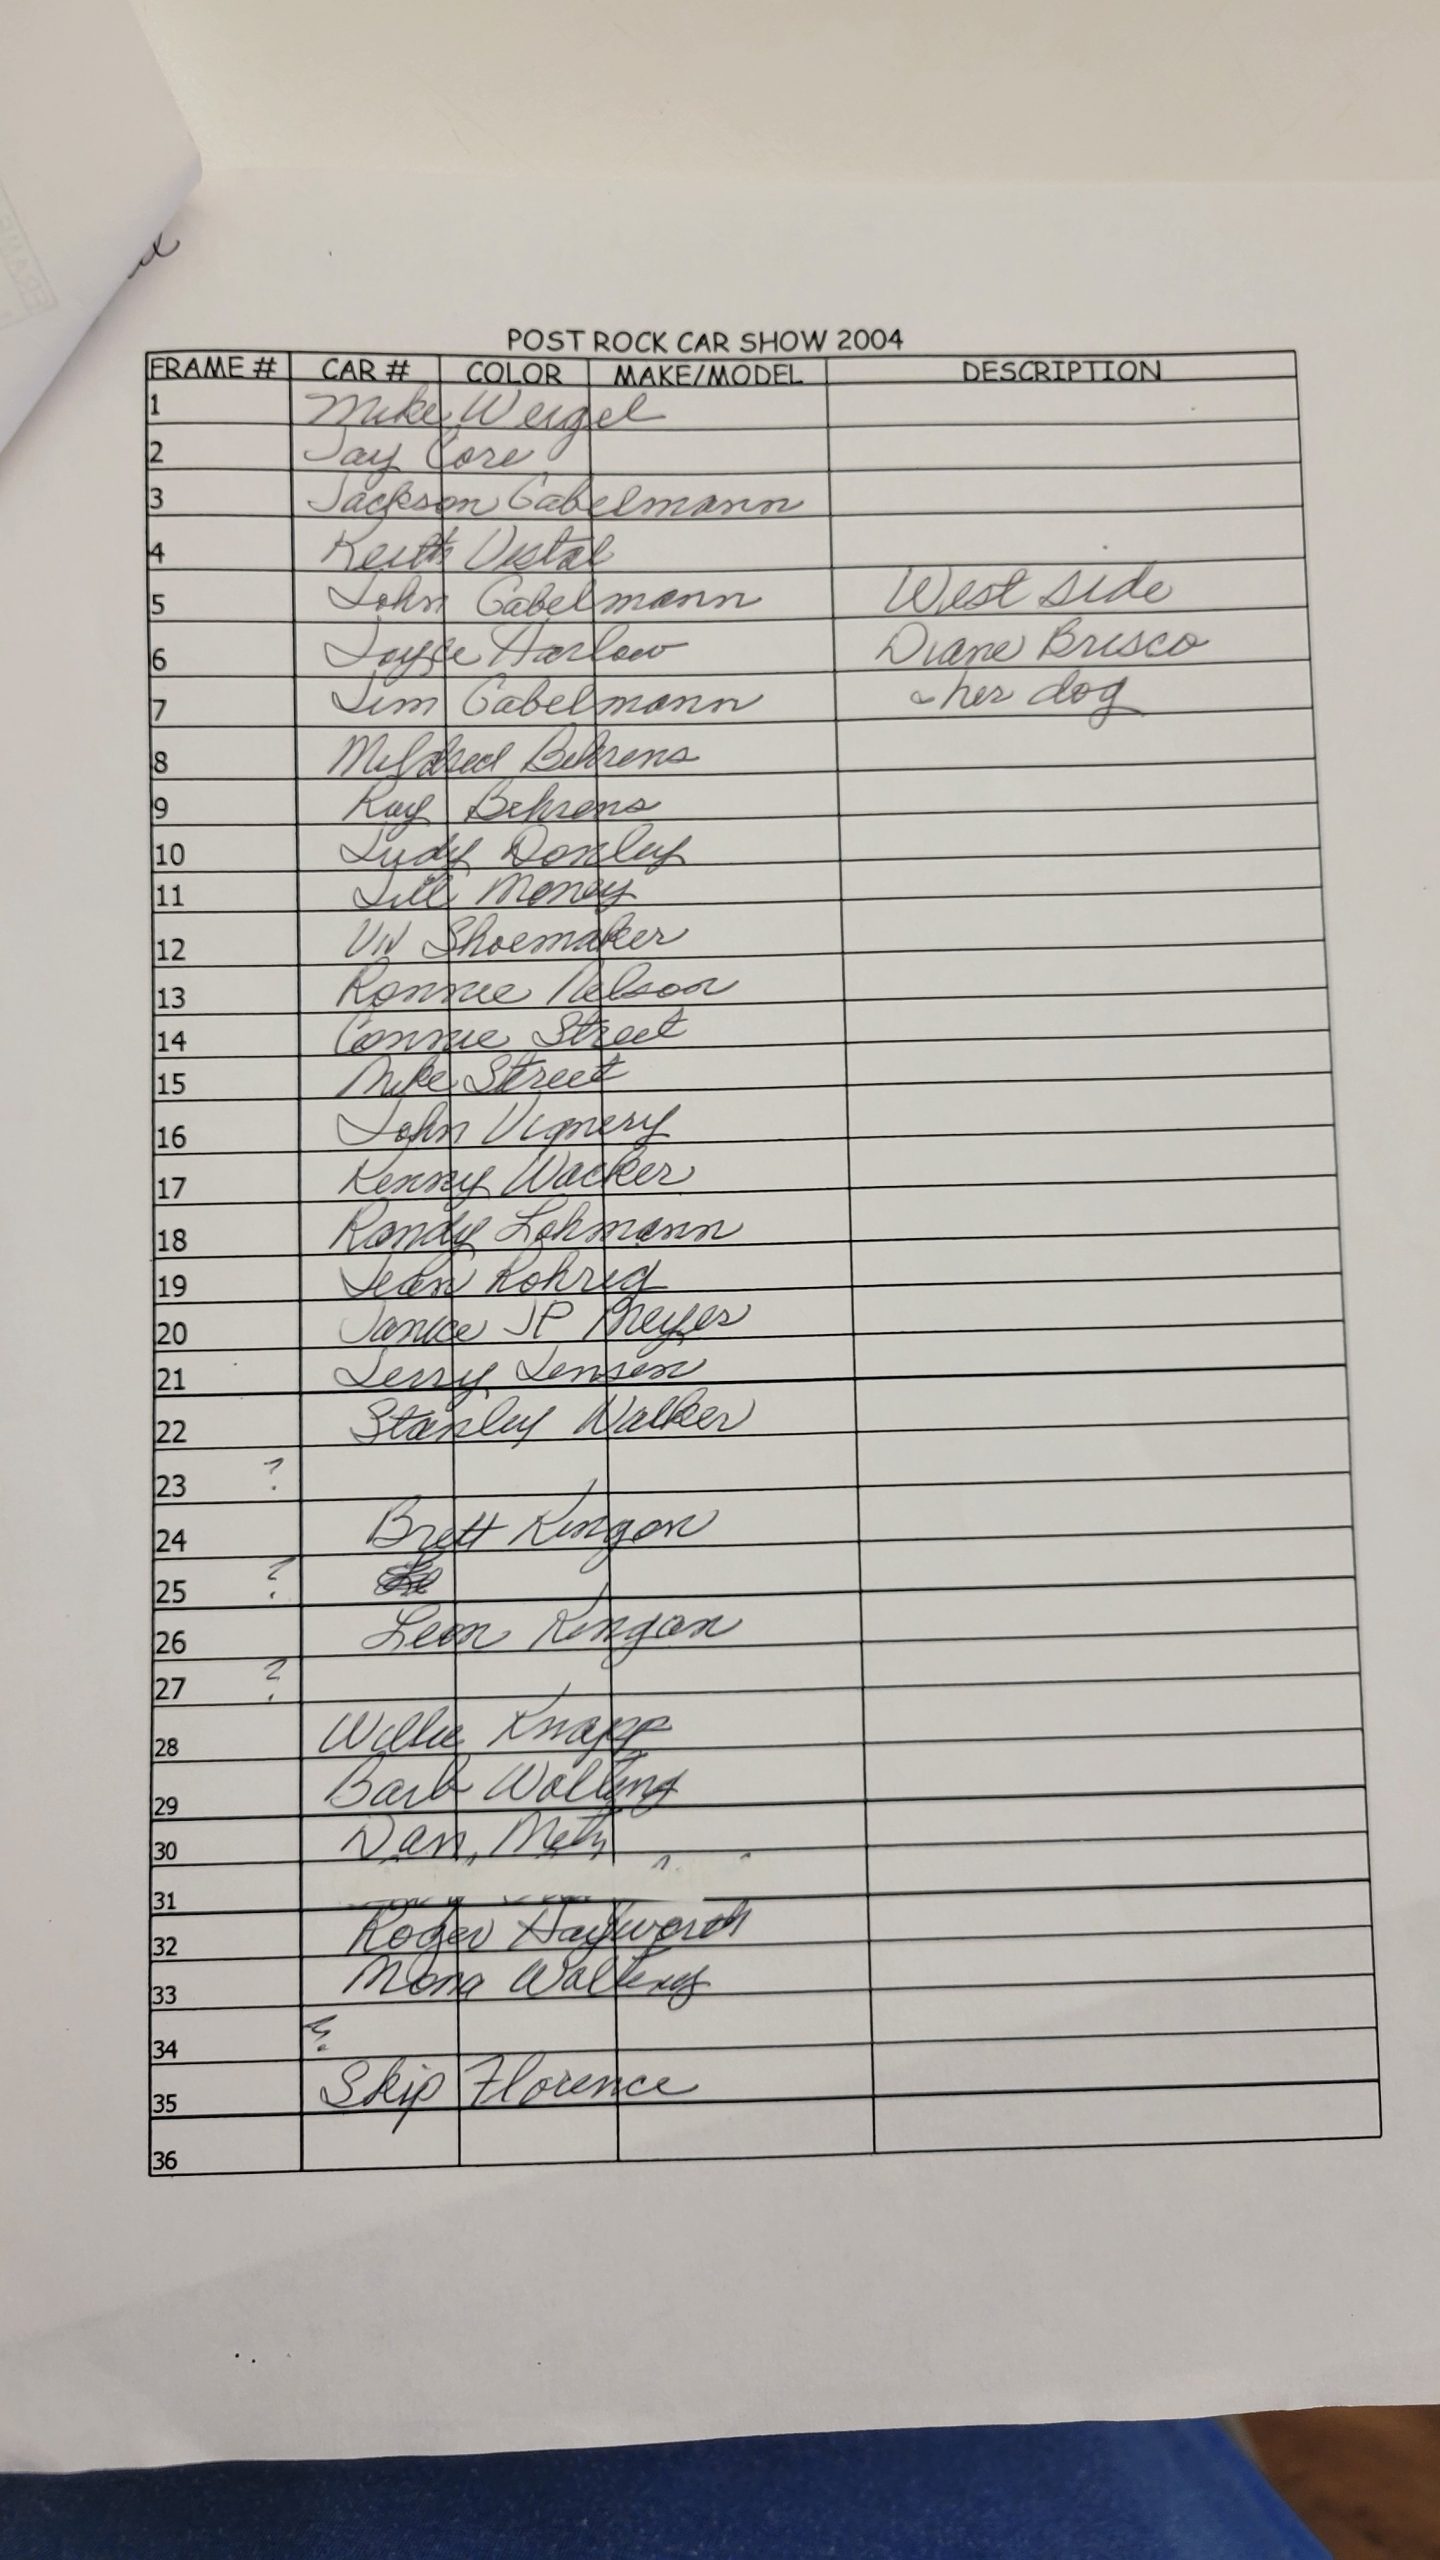 POST ROCK CAR SHOW 2004
FRAME # CAR # COLOR MAKE/MODEL DESCRIPTION
1 Mike Weigel
2 Jay Core
3 Jackson Gabelmann
4 Keith Vestal
5 John Gabelmann West side
6 Joyce Harlow Diane Brisco
7 Jim Gabelmann her dog
8 Mildred Behrens
9 Ray Behrens
10 Judy Donley
11 Jill Money
12 VN Shoemaker
13 Ronnie Nelson
14 Connie Street
15 Mike Street
16 John Vignery
17 Kenny Wacker
18 Randy Lohmann
19 Jean Rohrig
20 Janice JP Meyer
21 Jerry Jensen
22 Stanley Walker
23 ?
24 Brett Kingan
25 ?
26 Leon Kingan
27 ?
28 Willie Knapp
29 Barb Walting
30 Dan Metz
31
32 Roger Hayworth
33 Mona Walting
34 ?
35 Skip Florence
36